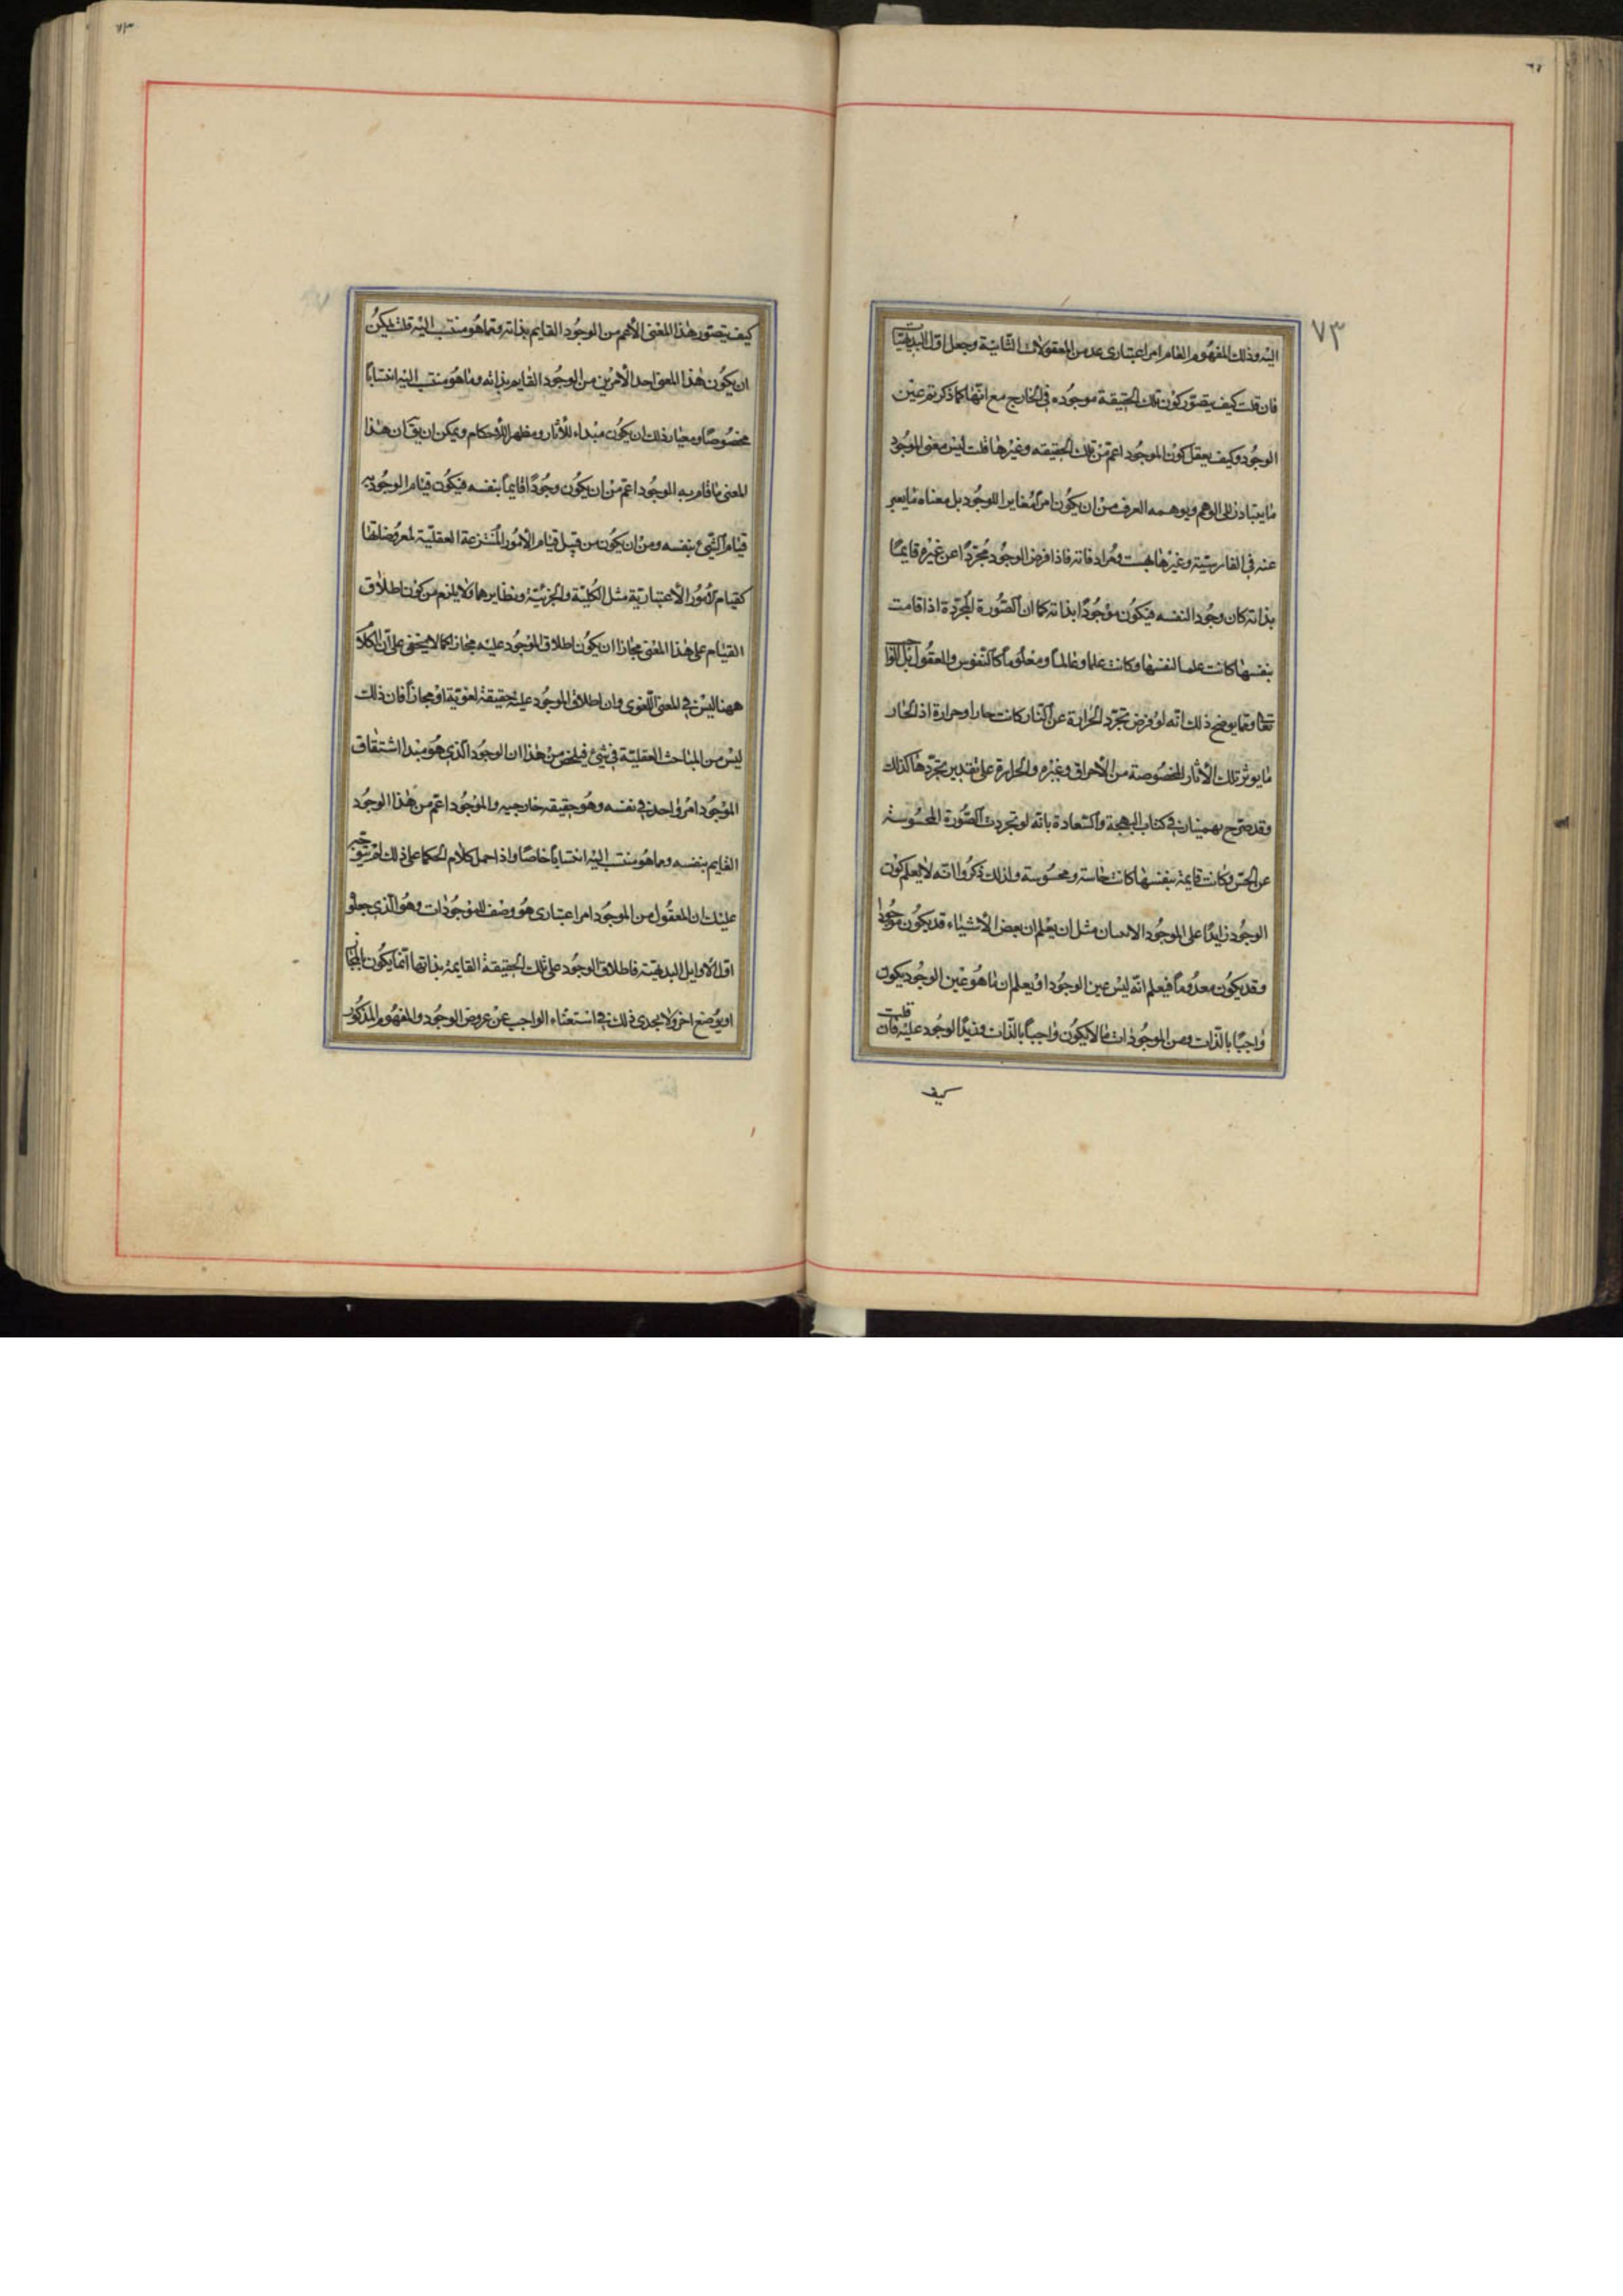 ٧٣
اليه وذلك المفهوم العام امر اعتبارى عد من المعقولات الثانية وجعل اول البديهيات
فان قلت كيف يتصور كون تلك الحقيقة موجوده فى الخارج مع انها كما ذكرتم عين
الوجود وكيف يعقل كون الموجود اعم من تلك الحقيقه وغيرها قلت ليس معنى الموجود
ما يتبادر الى الوهم ويوهمه العرف من ان يكون امراً مغايرا للوجود بل معناه ما يعبر
عنه فى الفارسيّة وغيرها بهست ومرادفاته فاذا فرض الوجود مجرّداً عن غيره قايمًا
بذاته كان وجودا لنفسه فيكون موجوداً بذاته كما ان الصّورة المجرّدة اذا قامت
بنفسها كانت علما لنفسها وكانت علما وعالماً ومعلوماً كالنفوس والعقول بل الواجب
تعا ومما يوضح ذلك انّه لو فرض تجرّد الحرارة عن النار كانت حارا وحرارة اذ الحار
ما يوثر تلك الأثار المخصوصة من الأحراق وغيره والحرارة على تقدير تجرّدها كذلك
وقد صرّح بهمنيار فى كتاب البهجة والسّعادة بانّه لو تجردت الصّورة المحسُوسة
عن الحسّ وكانت قايمة بنفسها كانت حاسة ومحسوسة ولذلك ذكروا انّه لا يعلم كون
الوجود زايدًا على الموجود الا ببيان مثل ان يعلم ان بعض الأشياء قد يكون موجودا
وقد يكون معدوماً فيعلم انّه ليس عين الوجود او يعلم ان ما هو عين الوجود يكون
واجبًا بالذّات ومن الموجودات ما لا يكون واجباً بالذّات فيزيدُ الوجود عليه فان قلت
كيف
كيف يتصور هذا المعنى الأعم من الوجود القايم بذاته وما هو منتسب اليه قلت يمكن
ان يكون هذا المعنى احد الأمرين من الوجود القايم بذاته وما هو منتسب اليه انتساباً
مخصوصاً ومعيار ذلك ان يكون مبداء للأثار ومظهر الأحكام ويمكن ان يقَ ان هذا
المعنى ما قام به الوجود اعم من ان يكون وجوداً قايماً بنفسه فيكون قيام الوجود به
قيام الشيء بنفسه ومن ان يكون من قبل قيام الأمور المنتزعة العقليّة لمعروضاتها
كقيام الأمور الأعتباريّة مثل الكليّة والجزئيّة ونظايرها ولا يلزم من كون اطلاق
القيام على هذا المعنى مجازا ان يكون اطلاق الموجود عليه مجازا كما لا يخفى على انّ الكلام
ههنا ليس فى المعنى اللّغوى وان اطلاق الموجود عليه حقيقة لغويّة او مجازاً فان ذلك
ليس من المباحث العقليّة فى شئ فيلخص من هذا ان الوجود الّذى هو مبدا اشتقاق
الموجود امر واحد فى نفسه وهو حقيقه خارجيه والموجود اعمّ من هذا الوجود
القايم بنفسه ومما هو منتسب اليه انتساباً خاصًا واذا حمل كلام الحكما على ذلك لم يتوجّه
عليك ان المعقول من الموجود امر اعتبارى هو وصف للموجودات وهو الّذى جعلو
اوّل الاوايل البديهيّة فاطلاق الوجود على تلك الحقيقة القايمة بذاتها انّما يكون بالمجاز
او بوضع اخر ولا يجدى ذلك فى استغناء الواجب عن عروض الوجود والمفهوم المذكور